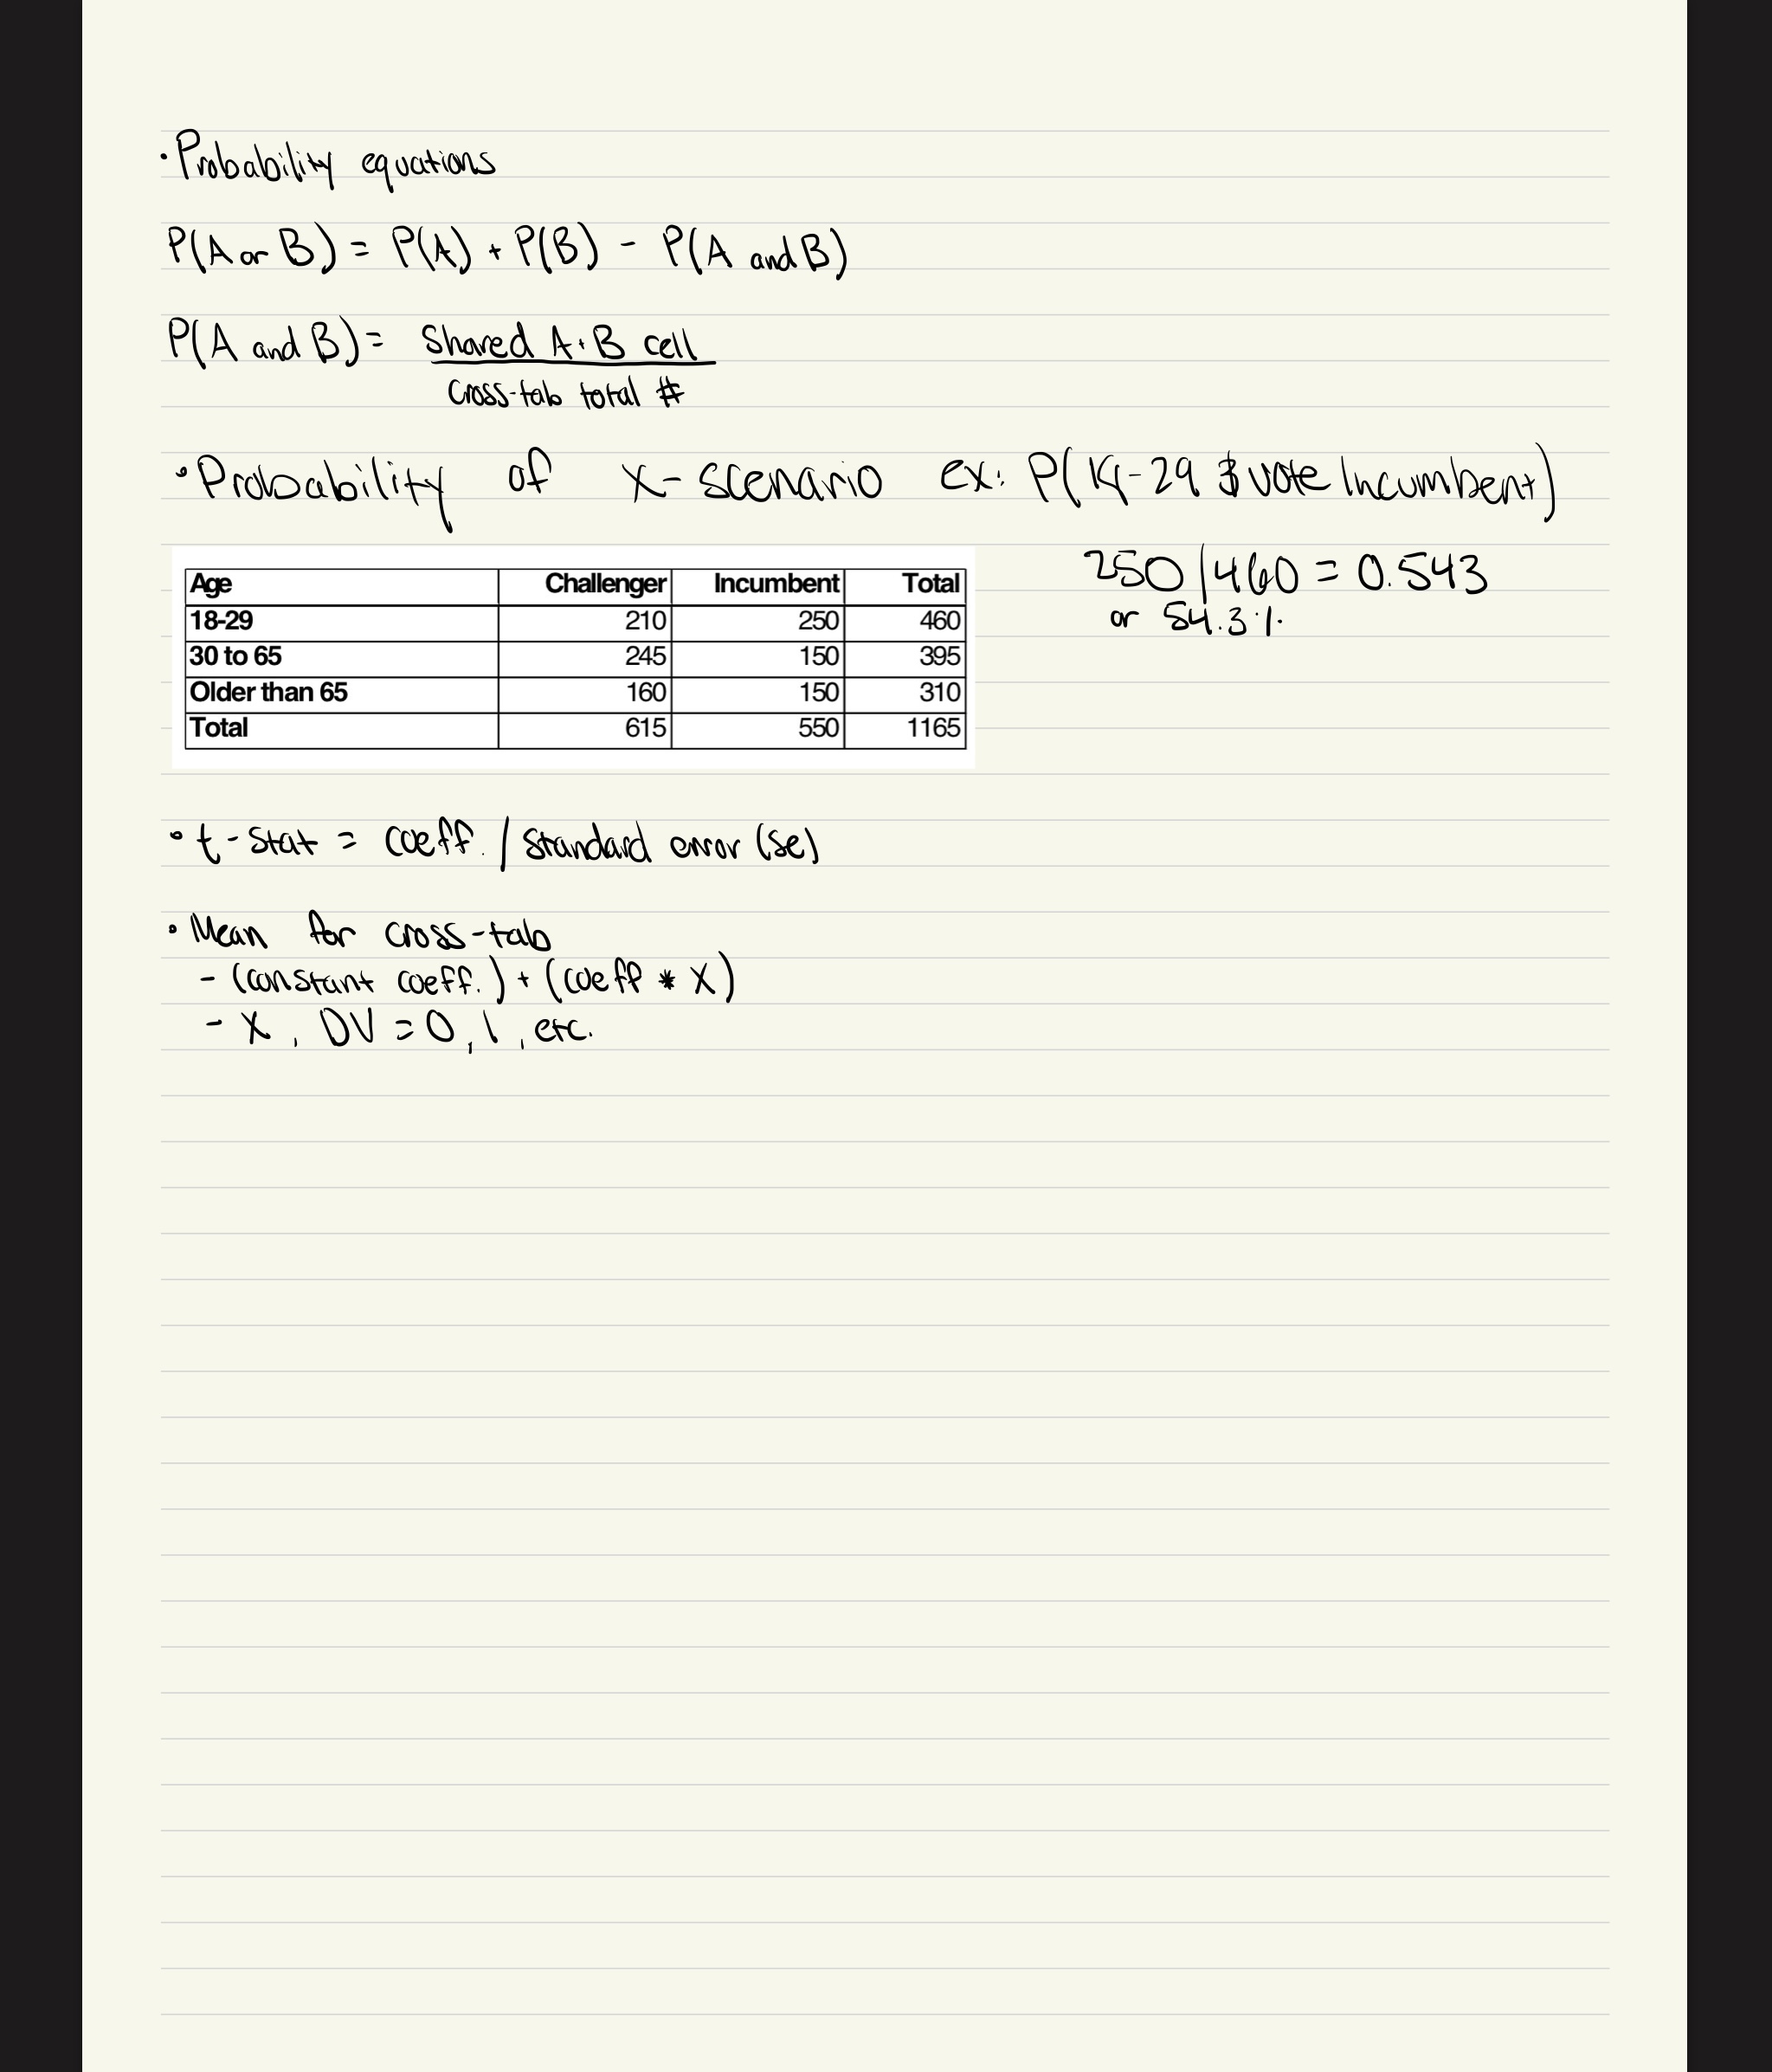 • Probability equations
P(A or B) = P(A) + P(B) - P(A and B)
P(A and B) = shared A + B cell
cross-tab total #
• Probability of X-scenario ex: P(18-29 & vote Incumbent)
250/460 = 0.543
or 54.3%
Age Challenger Incumbent Total
18-29 210 250 460
30 to 65 245 150 395
Older than 65 160 150 310
Total 615 550 1165
• t-stat = coeff. / standard error (se)
• Mean for cross-tab
- (constant coeff.) + (coeff * X)
- X, DV = 0, 1, etc.